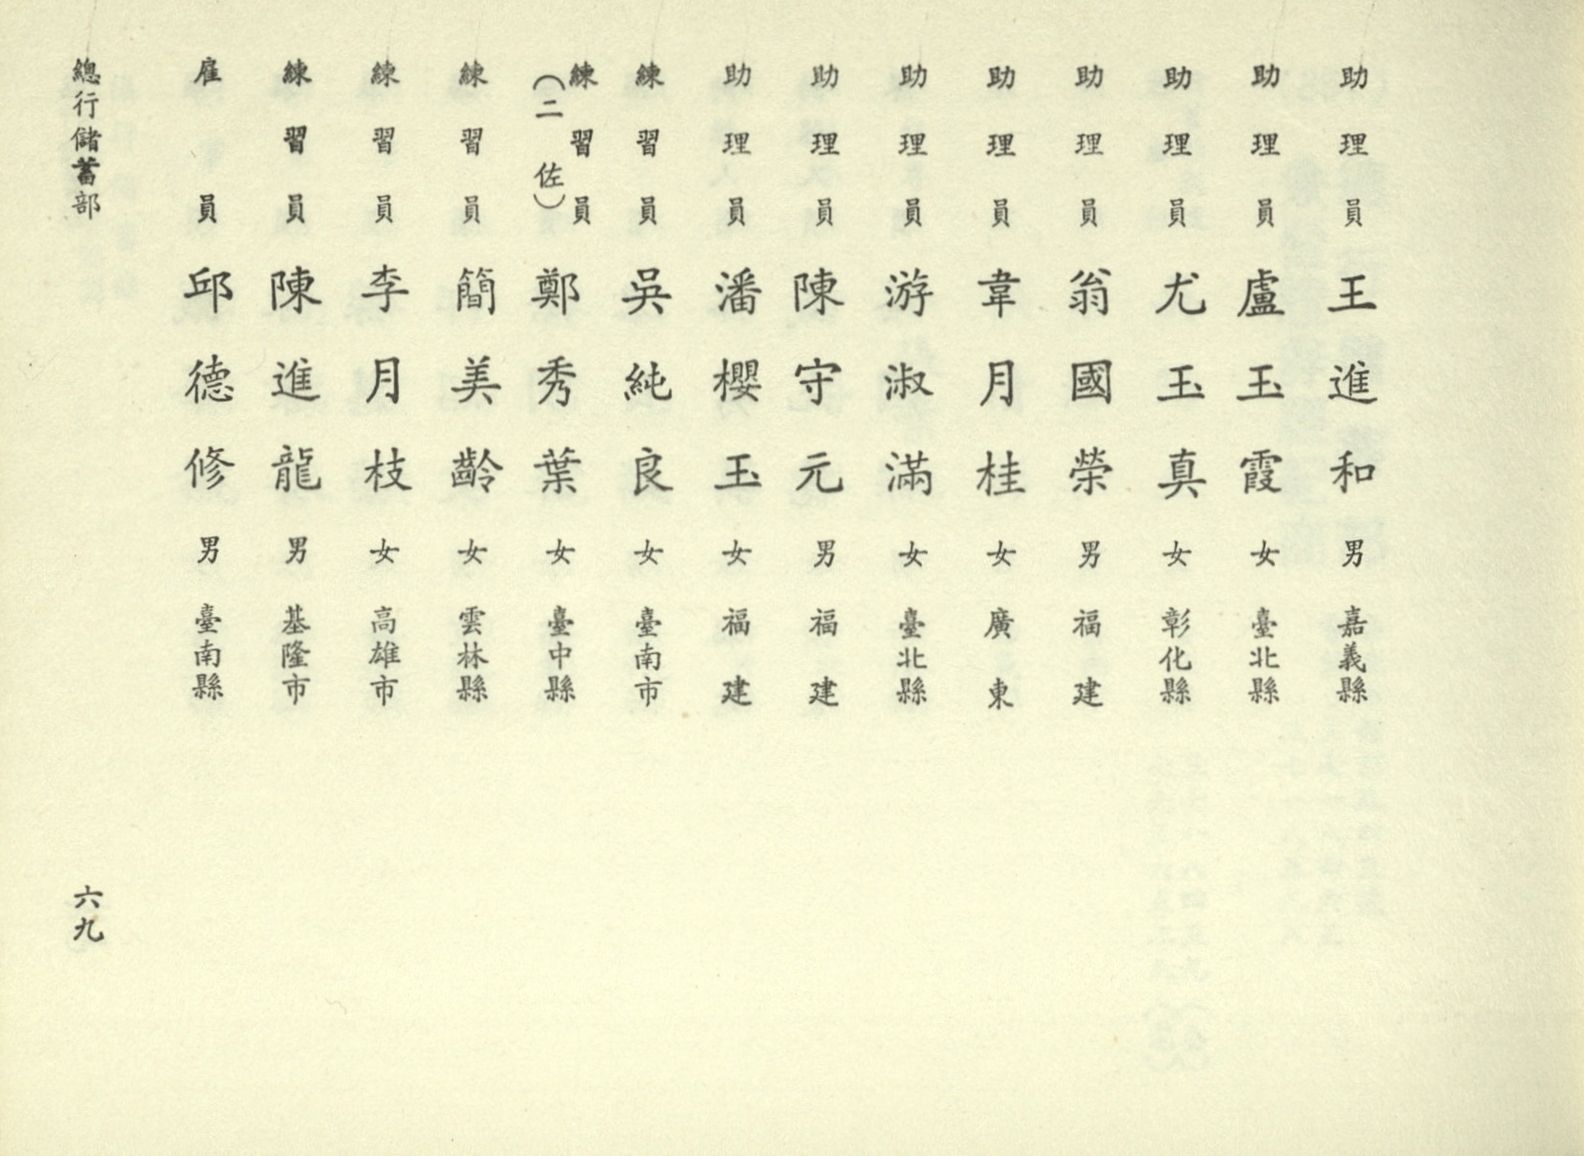 助理員 王進和 男 嘉義縣
助理員 盧玉霞 女 臺北縣
助理員 尤玉真 女 彰化縣
助理員 翁國榮 男 福建
助理員 韋月桂 女 廣東
助理員 游淑滿 女 臺北縣
助理員 陳守元 男 福建
助理員 潘櫻玉 女 福建
練習員 吳純良 女 臺南市
練習員(二佐) 鄭秀葉 女 臺中縣
練習員 簡美齡 女 雲林縣
練習員 李月枝 女 高雄市
練習員 陳進龍 男 基隆市
雇員 邱德修 男 臺南縣
總行儲蓄部 六九